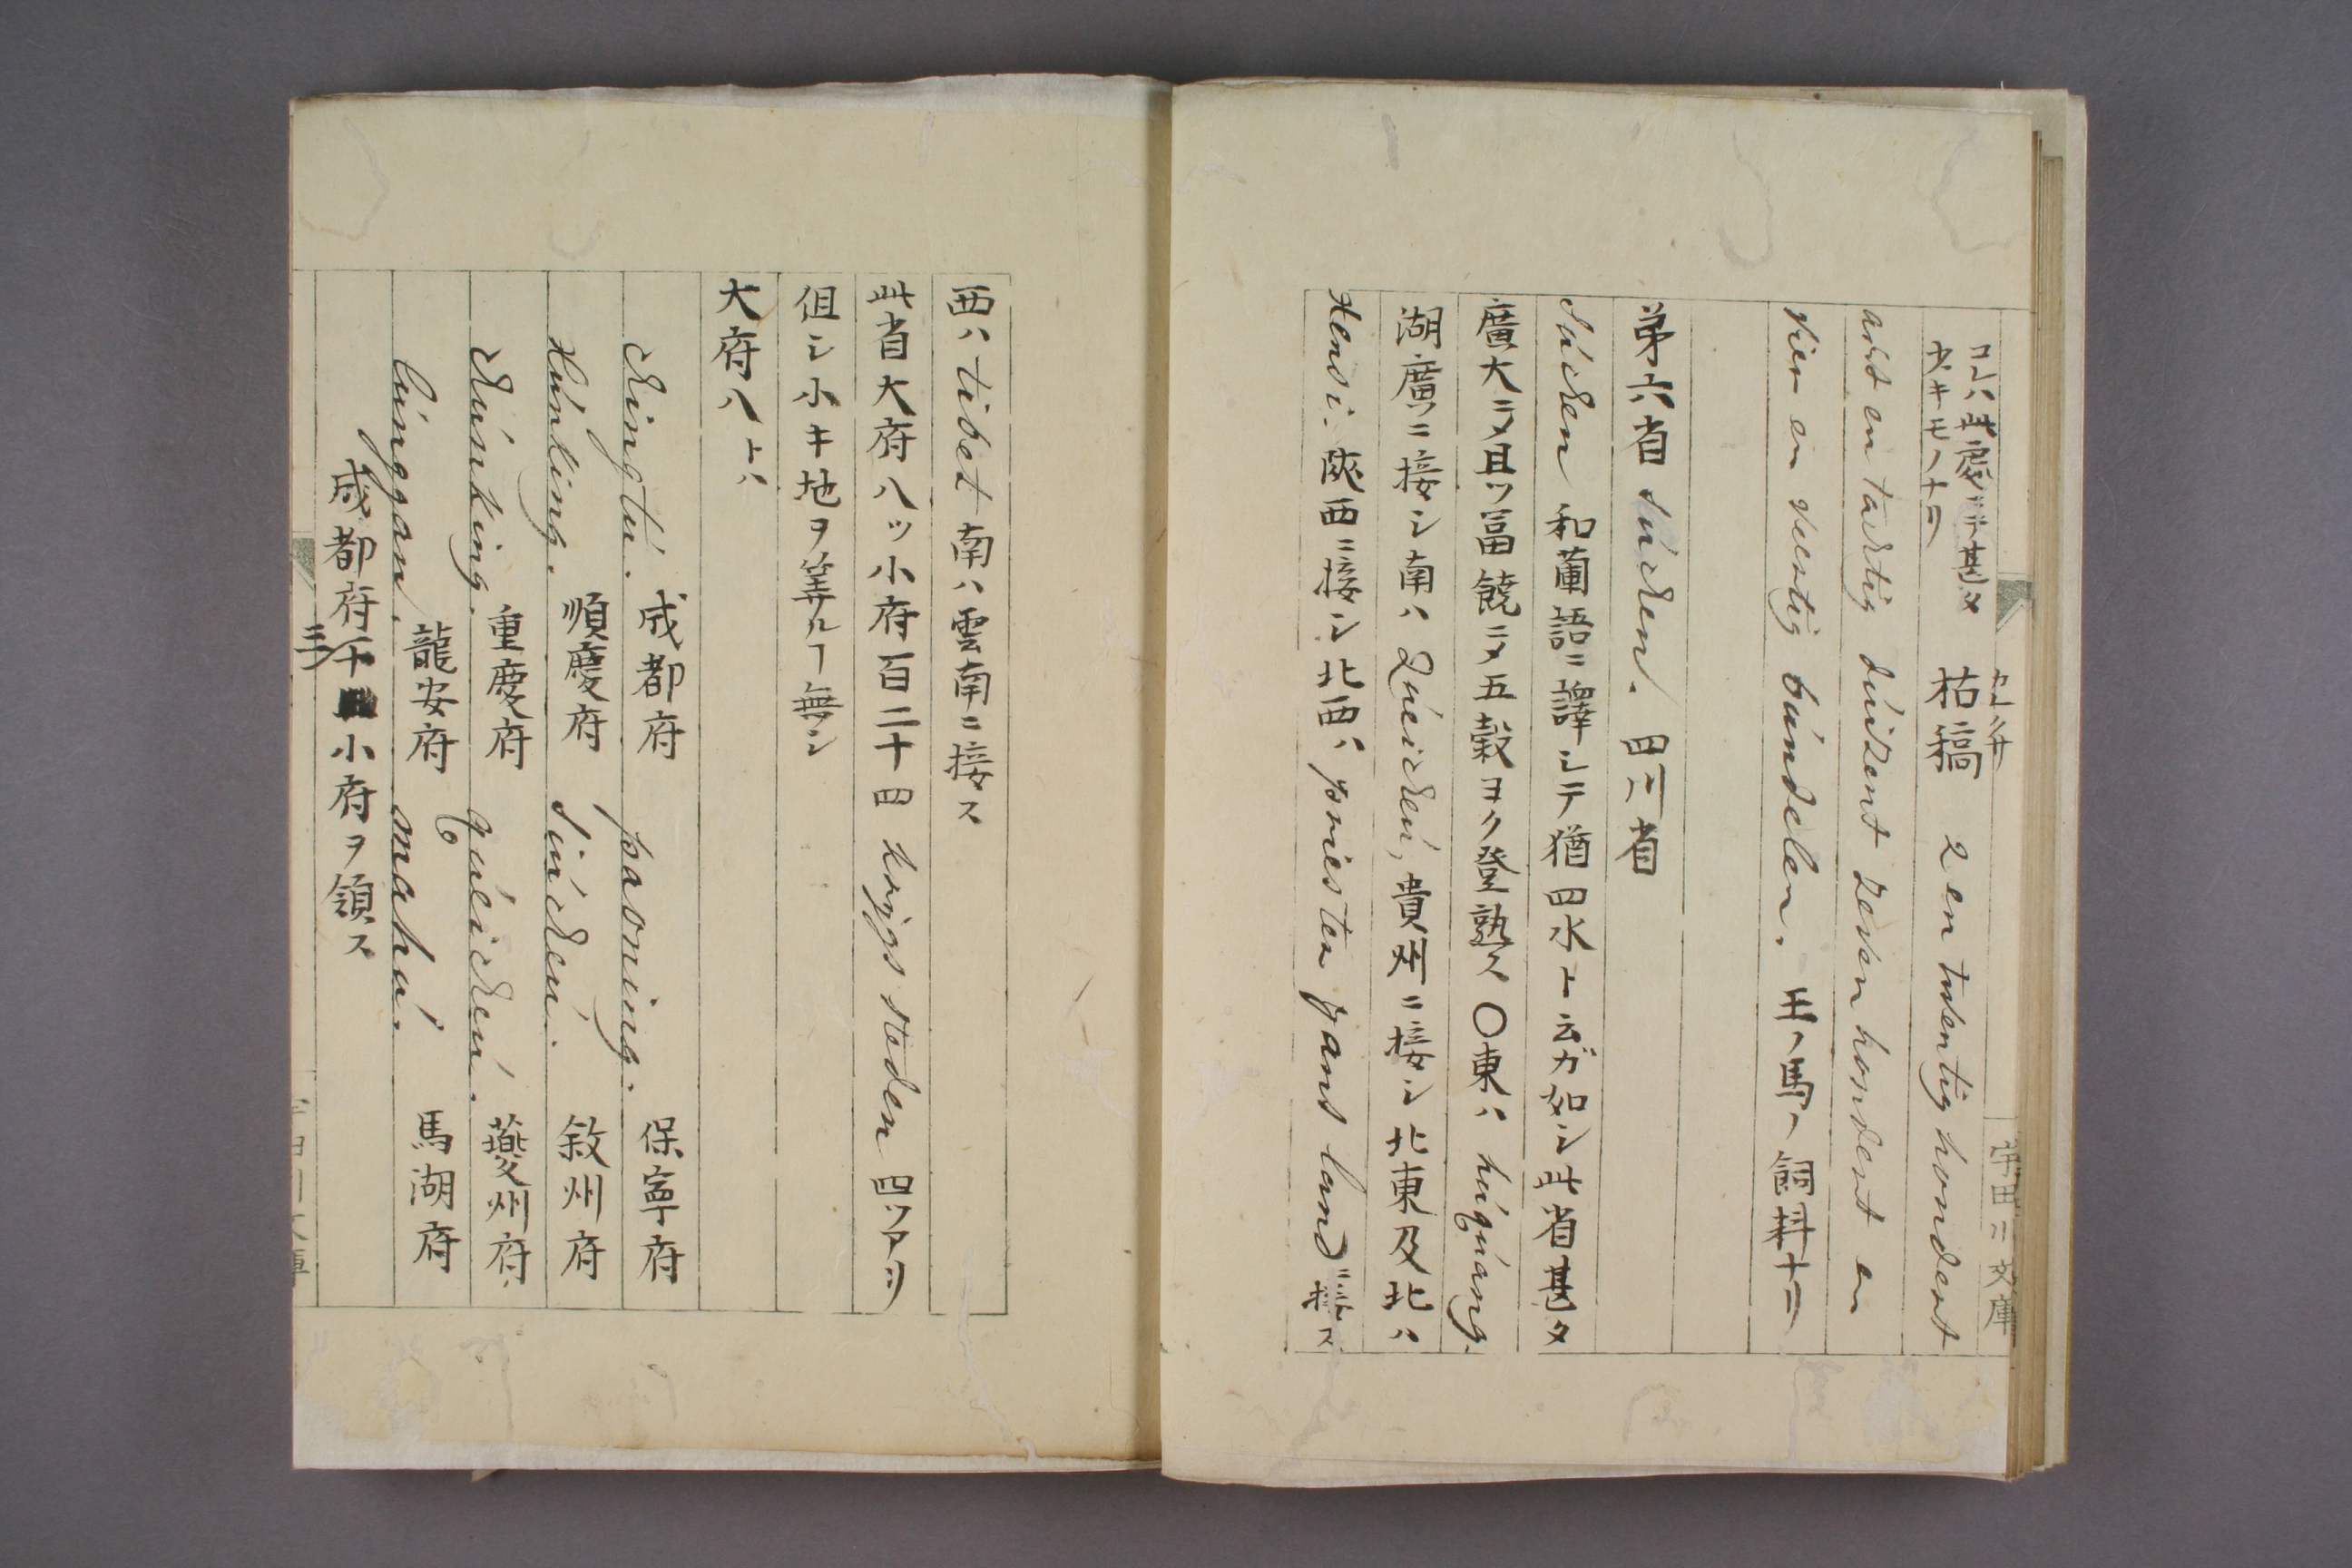 コレハ此處ニテ甚タ
少キモノナリ
枯稿 2 en twentig hondert
カレクサ
acht en tachtig duizent zeven hondert en
vier en veertig bundelen. 王ノ馬ノ飼料ナリ
第六省 súchen. 四川省
súchen 和蘭語ニ譯シテ猶四水ト云ガ如シ此省甚タ
廣大ニメ且ツ冨饒ニメ五穀ヨク登熟ス〇東ハ húqúang.
湖廣ニ接シ南ハ Quéicheú, 貴州ニ接シ北東及北ハ
Xensi. 陝西ニ接シ北西ハ priester jans landニ接ス
宇田川文庫
西ハ tibet 南ハ雲南ニ接ス
此省大府八ッ小府百二十四 krijgs steden 四ツアリ
但シ小キ地ヲ筭ルヿ無シ
大府八トハ
chingtú. 成都府 paoning. 保寧府
Xúnking. 順慶府 siúcheú. 敘州府
chúnking. 重慶府 quéicheú. 夔州府
lúnggan. 龍安府 mahú. 馬湖府
成都府三十小府ヲ領ス